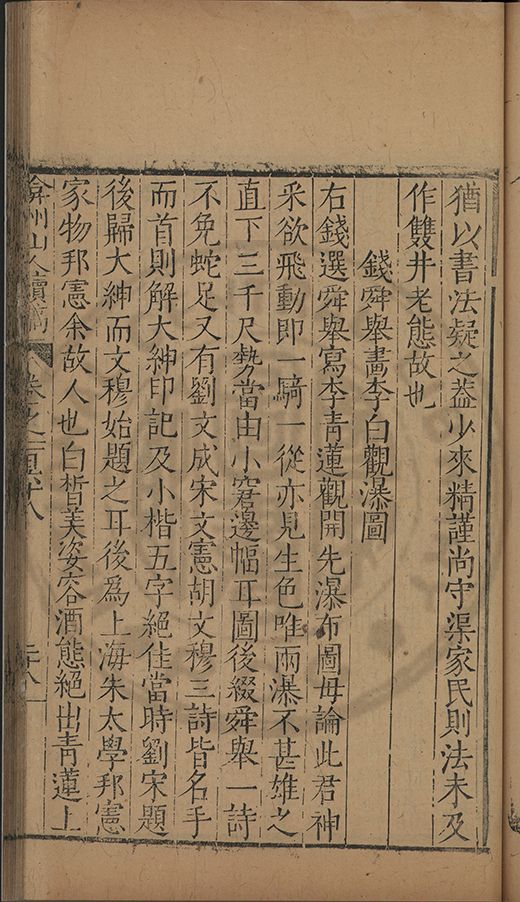 猶以書法疑之葢少來精謹尚守渠家民則法未及
作雙井老態故也
錢舜舉畫李白觀瀑圖
右錢選舜舉寫李青蓮觀開先瀑布圖毋論此君神
采欲飛動即一騎一從亦見生色唯兩瀑不甚雄之
直下三千尺勢當由小窘邊幅耳圖後綴舜舉一詩
不免蛇足又有劉文成宋文憲胡文穆三詩皆名手
而首則解大紳印記及小楷五字絕佳當時劉宋題
後歸大紳而文穆始題之耳後爲上海朱太學邦憲
家物邦憲余故人也白皙美姿容酒態絕出青蓮上
弇州山人續稿 卷之一百六十八